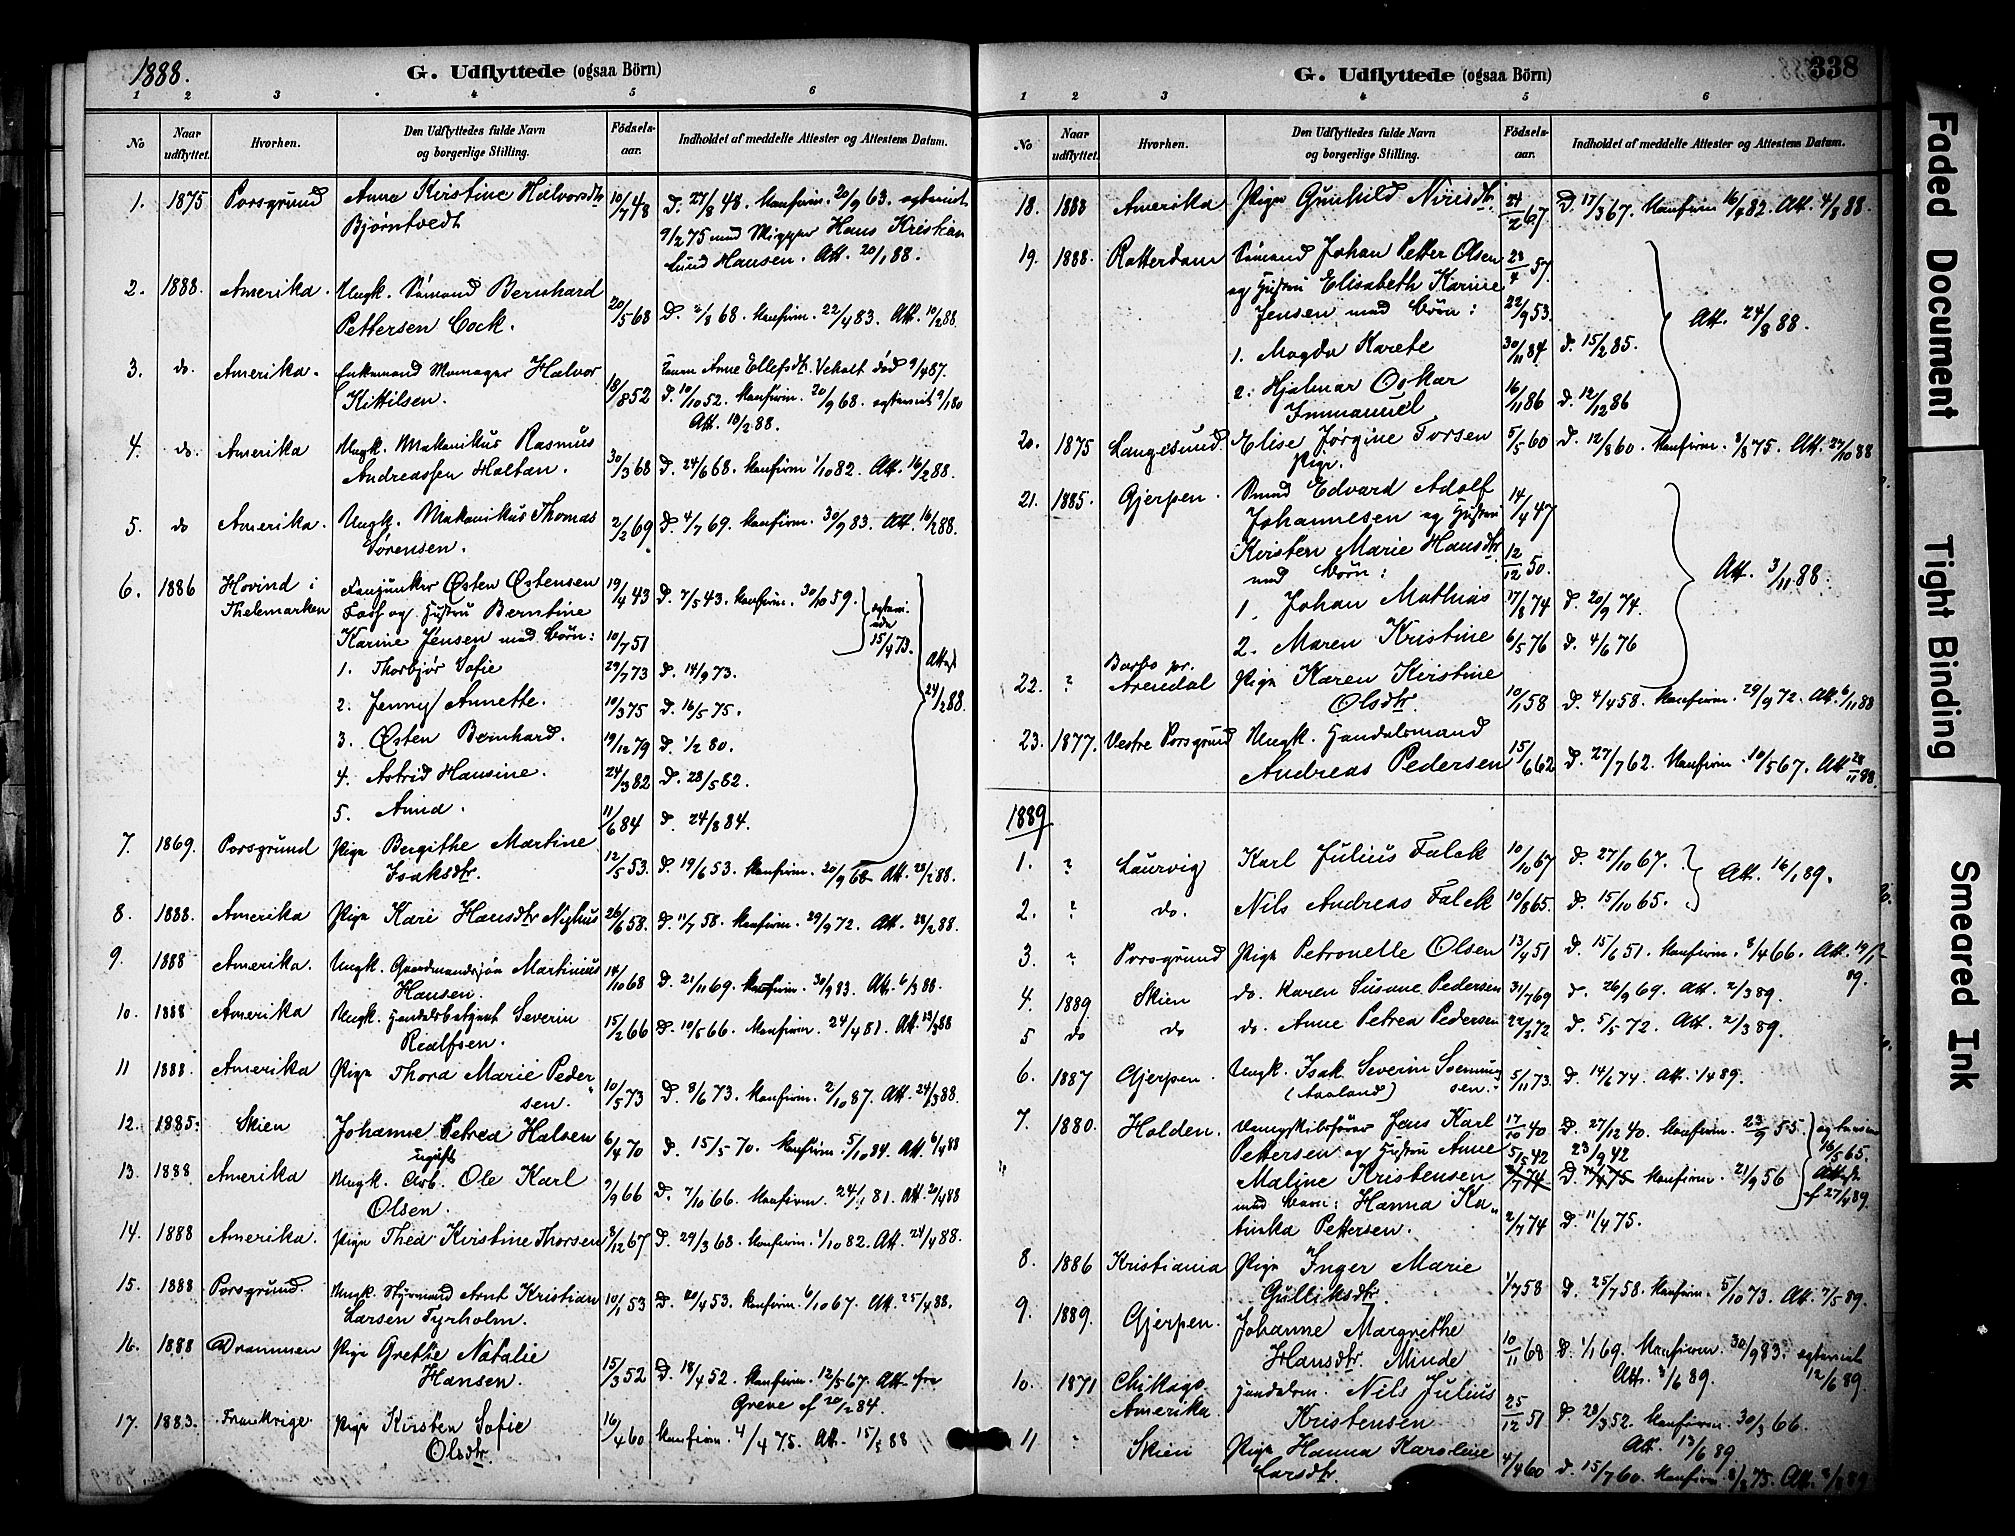 1888.
G. Udflyttede (ogsaa Börn)
1 2 3 4 5 6
No
Naar udflyttet.
Hvorhen.
Den Udflyttedes fulde Navn og borgerlige Stilling.
Födsels-aar.
Indholdet af meddelte Attester og Attestens Datum.
1. 1875 Porsgrund Anne Kirstine Halvorsdtr 10/7 48 D. 27/8 48. Konfirm. 20/9 63. egteviet
Bjørntvedt 9/2 75 med Skipper Hans Kristian
Lund Hansen. Att. 20/1 88.
2. 1888. Amerika. Ungk. Sömand Bernhard
Pettersen Cock. 20/5 68 D. 2/8 68. Konfirm. 22/4 83. Att. 10/2 88.
3. do. Amerika. Enkemand Halvor Anne Ellefsdtr. død 9/4 87.
Kittilsen. 18/8 52 D. 10/10 52. Konfirm. 20/9 68. egteviet 9/1 80
Att. 10/2 88.
4. do. Amerika Ungk. Mekanikus Rasmus
Andreassen Haltan. 30/3 68 D. 24/6 68. Konfirm 1/10 82. Att. 16/2 88.
5. do Amerika. Ungk. Mekanikus Thomas 2/2 69 D. 4/7 69. Konfirm. 30/9 83. Att. 16/2 88.
Sørensen.
6. 1886 Hovind i Fanejunker Østen Østensen 19/4 43 D. 7/5 43. Konfirm. 30/10 59.
Thelemarken og Hustru Berntine 15/4 73.
Karine Jensen med Børn: 10/7 51
1. Thorbjør Sofie 29/7 73 D. 14/9 73. Attest 24/2 88.
2. Jenny Annette. 10/3 75 D. 16/5 75.
3. Østen Bernhard. 19/12 79 D. 1/2 80.
4. Astrid Hansine. 24/3 82 D. 28/5 82.
5. Arna. 11/6 84 D. 24/8 84.
7. 1869. Porsgrund Pige Bergithe Martine
Isaksdtr. 12/5 53. D. 19/6 53. Konfirm. 20/9 68 Att. 28/2 88.
8. 1888. Amerika Pige Kari Hansdtr Nyhus 26/6 58. D. 11/7 58. Konfirm. 29/9 72. Att. 28/2 88.
9. 1888 Amerika. Ungk. Gaardmandssøn Martinius
Hansen. 14/10 68 D. 21/11 69. Konfirm. 30/9 83. Att. 6/3 88.
10. 1888 Amerika Ungk. Handelsbetjent Severin
Rialfsen. 15/2 66 D. 10/5 66. Konfirm. 24/4 81. Att. 13/3 88
11 1888. Amerika Pige Thora Marie Peder-
sen. 10/5 73 D. 8/6 73. Konfirm. 2/10 87. Att. 24/3 88.
12. 1885. Skien Johanne Petrea Halsen 6/4 70 D. 15/5 70. Konfirm. 5/10 84. Att. 6/4 88
ugift
13. 1888 Amerika Ungk. Arb. Ole Karl
Olsen. 9/9 66 D. 7/10 66. Konfirm. 24/4 81. Att. 20/4 88
14. 1888 Amerika. Pige Thea Kirstine Thorsen 8/12 67 D. 29/3 68. Konfirm. 1/10 82. Att. 24/4 88.
15. 1888 Porsgrund. Ungk. Styrmand Arnt Kristian
Larsen Tyrholm. 10/1 53 D. 20/4 53. Konfirm. 6/10 67. Att. 25/4 88.
16. 1888 Drammen Pige Grethe Natalie
Hansen. 15/3 52 D. 18/4 52. Konfirm. 12/5 67. Att. fra
Greve af 20/2 84.
17. 1883. Frankrige. Pige Kirsten Sofie
Olsdtr. 16/4 60 Konfirm. 4/4 75. Att. 15/5 88
338
G. Udflyttede (ogsaa Börn)
1 2 3 4 5 6
No
Naar udflyttet.
Hvorhen.
Den Udflyttedes fulde Navn og borgerlige Stilling.
Födsels-aar.
Indholdet af meddelte Attester og Attestens Datum.
18. 1888 Amerika Pige Gunhild Nirisdtr. 24/2 67 D. 17/3 67. Konfirm 16/4 82. Att. 4/8 88.
19. 1888. Rotterdam Sömand Johan Petter Olsen 23/4 57.
og Hustru Elisabeth Karine
Jensen med Børn: 22/9 53. Att. 24/8 88.
1. Magda Karete 30/11 84. D. 15/2 85.
2. Hjalmar Oskar
Immanuel 16/11 86 D. 12/12 86
20. 1875 Langesund Elise Jørgine Torsen 5/5 60 D. 12/8 60. Konfirm. 8/8 75. Att. 27/10 88
Pige.
21. 1885. Gjerpen. Smed Edvard Adolf 14/4 47
Johannesen og Hustru
Kirsten Marie Hansdtr 12/12 50.
med Børn: Att. 3/11 88.
1. Johan Mathias 17/8 74 D. 20/9 74.
2. Maren Kristine 6/5 76 D. 4/6 76
22. ? Barbo pr. Arendal Pige Karen Kirstine
Olsdtr. 10/1 58 D. 4/4 58. Konfirm. 29/9 72. Att. 6/11 88
23. 1877. Vestre Porsgrund Ungk. Handelsmand
Andreas Pedersen 15/6 62 D. 27/7 62. Konfirm. 10/5 67. Att 28/11 88.
1889
1. ? Laurvig Karl Julius Falck 10/10 67 D. 27/10 67. Att. 16/1 89.
2. ? do. Nils Andreas Falck 10/8 65. D. 15/10 65.
3. ? Porsgrund Pige Petronelle Olsen 13/4 51 D. 15/6 51. Konfirm. 8/4 66. Att. 19/1
89.
4. 1889 Skien do. Karen Susane Pedersen 31/7 69 D. 26/9 69. Att. 2/3 89.
5 do do do. Anne Petrea Pedersen 22/3 72 D. 5/5 72. Att. 2/3 89.
6. 1887 Gjerpen. Ungk. Isak Severin Sörensen 5/11 73. D. 14/6 74. Att. 1/4 89.
7. 1880. Holden. Jens Karl 17/10 40 D. 27/12 40. Konfirm. 23/9 55.
Pettersen og Hustru Anne 5/5 42 23/9 42 16/5 65.
Maline Kristensen 2/7 74 D. 11/4 75 Konfirm. 21/9 56 Attest
med Barn: Hanna Ka- af 27/4 89.
tinka Pettersen. 2/7 74 D. 11/4 75.
8. 1886 Kristiania Pige Inger Marie
Gulliksdtr. 1/7 58 D. 25/7 58. Konfirm. 5/10 73. Att. 7/5 89.
9. 1889. Gjerpen. Johanne Margrethe
Hansdtr. Minde 10/11 68 D. 1/1 69. Konfirm. 30/9 83. egteviet
Att. 3/6 89. 12/6 89
10. 1871 Chikago. Handelsm. Nils Julius
Amerika. Kristensen 25/12 51 D. 28/3 52. Konfirm. 30/3 66.
Att. 13/6 89.
11 Skien Pige Hanna Karoline
Larsdtr. 4/4 60 D. 15/7 60. Konfirm. 8/8 75. Att. 2/8 89.
Faded Document
Tight Binding
Smeared Ink